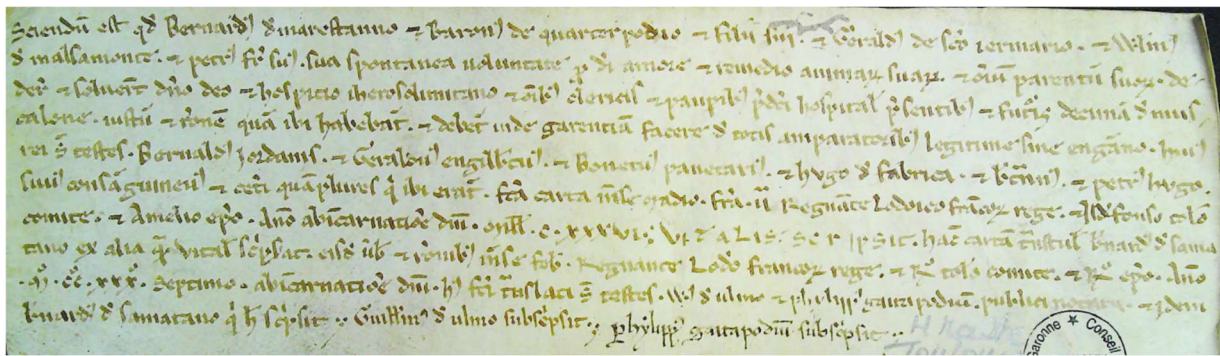 Sciendū est qd Bernard' d marestanno & Baron' de quarter podio & filii sui . & Gerald' de sco iermario . & Willm'
d malsamonte . & petr' fr su' . sua spontanea voluntate p di amore & remedio animaꝝ suaꝝ . & oīum parentū suoꝝ . de-
der & solverūt dño deo & hospitio iherosolimitano & oīb' clericis & paupib' pdci hospital' psentib' & futur' decimā d mus
calone . iustū & rōnē quā ibi habebāt . & debēt inde garentiā facere d totis amparatorib' legitime sine engāno . hui'
rei s̄ testes . Bernald' iordanis . & Gerald' engilbti' . & Bonet' panetari' . & hugo d fabrica . & . & petr' hugo .
suus consāguineus & ceti quāplures q ibi erāt . fcā carta mse madio . fra . ii Regnāte Lodoico francoꝝ rege . & Ildefonso tolo
comite . & Amelio epo . Año abīcarnatioē dñi . mill . c . xxxvi ; VITALIS . SCRIPSIT . hāc cartā trāstul' bnard' d sama
tano ex alia qā vital' scpserat . eisdē ūb' & rōnib' mse feb . Regnante Lodo francoꝝ rege . & R' tolo comite . & R' epo . Año
. M . CC . xxx . septimo . abīcarnatioē dñi . h' fcti trāslati s̄ testes . W' d ulmo & philipp' gautapodiū . publici notarii . & idem
bnard' d samatano q h scpsit ·· Guillm' d ulmo subscpsit ·· Phylipp' gautapodiū subscpsit ··
Garonne ★ Conseil